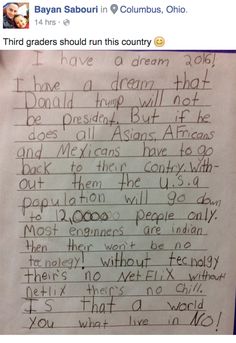 Bayan Sabouri in Columbus, Ohio.
14 hrs ·
Third graders should run this country
I have a dream 2016!
I have a dream that
Donald trump will not
be president. But if he
does all Asians, Africans
and Mexicans have to go
back to their contry. With-
out them the U.S.a
population will go down
to 12,0000 people only.
Most enginners are indian
then their won't be no
tecnolegy! without tecnolgy
their's no Netflix without
netlix their's no chill.
IS that a world
you what live in NO!